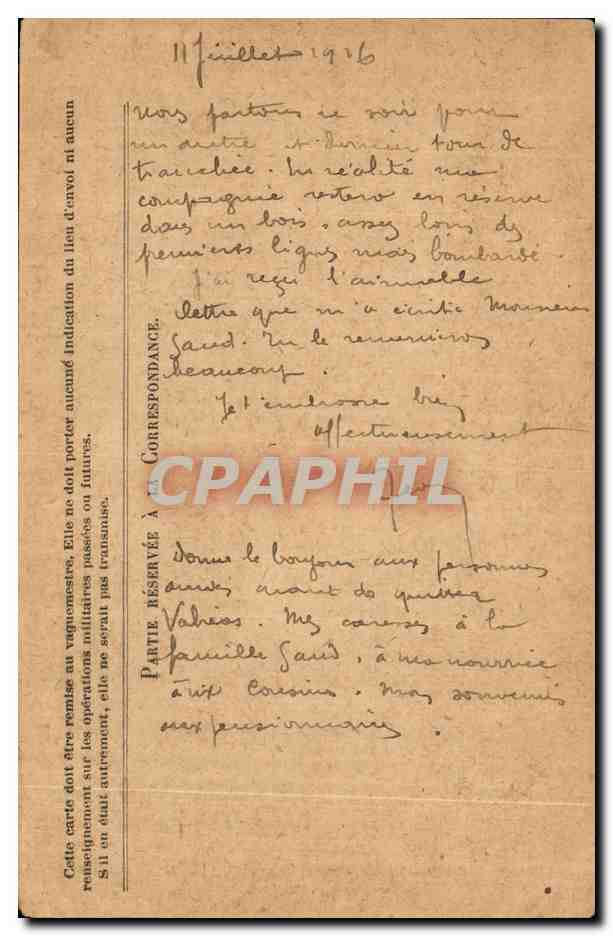 11 Juillet 1916
Nous partons ce soir pour
un autre et dernier tour de
tranchée. En réalité ma
compagnie restera en réserve
dans un bois, assez loin des
premières lignes mais bombardé.
J'ai reçu l'aimable
lettre que m'a écrite Monsieur
Gaud. Tu le remercieras
beaucoup.
Je t'embrasse bien
affectueusement
Donne le bonjour aux personnes
amies avant de quitter
Valréas. Mes caresses à la
famille Gaud, à ma nourrice
aux Cousins. Mon souvenir
aux pensionnaires.
PARTIE RÉSERVÉE À LA CORRESPONDANCE.
Cette carte doit être remise au vaguemestre. Elle ne doit porter aucune indication du lieu d'envoi ni aucun
renseignement sur les opérations militaires passées ou futures.
S'il en était autrement, elle ne serait pas transmise.
CPAPHIL